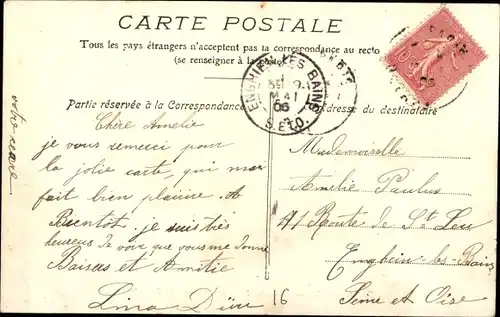 CARTE POSTALE
Tous les pays étrangers n'acceptent pas la correspondance au recto
(se renseigner à la poste)
ENGHIEN LES BAINS
MAI
06
S.ET O.
Partie réservée à la Correspondance
Adresse du destinataire
Chère Amelie
je vous remerci pour
la jolie carte, qui ma
fait bien plaisire. A
Bientôt. je suis très
heureuse de voire que vous me donne
Baisas et Amitie
Lina
votre
Mademoiselle
Amelie Paulus
41 Route de St Leu
Enghein-les-Bains
Seine et Oise
16